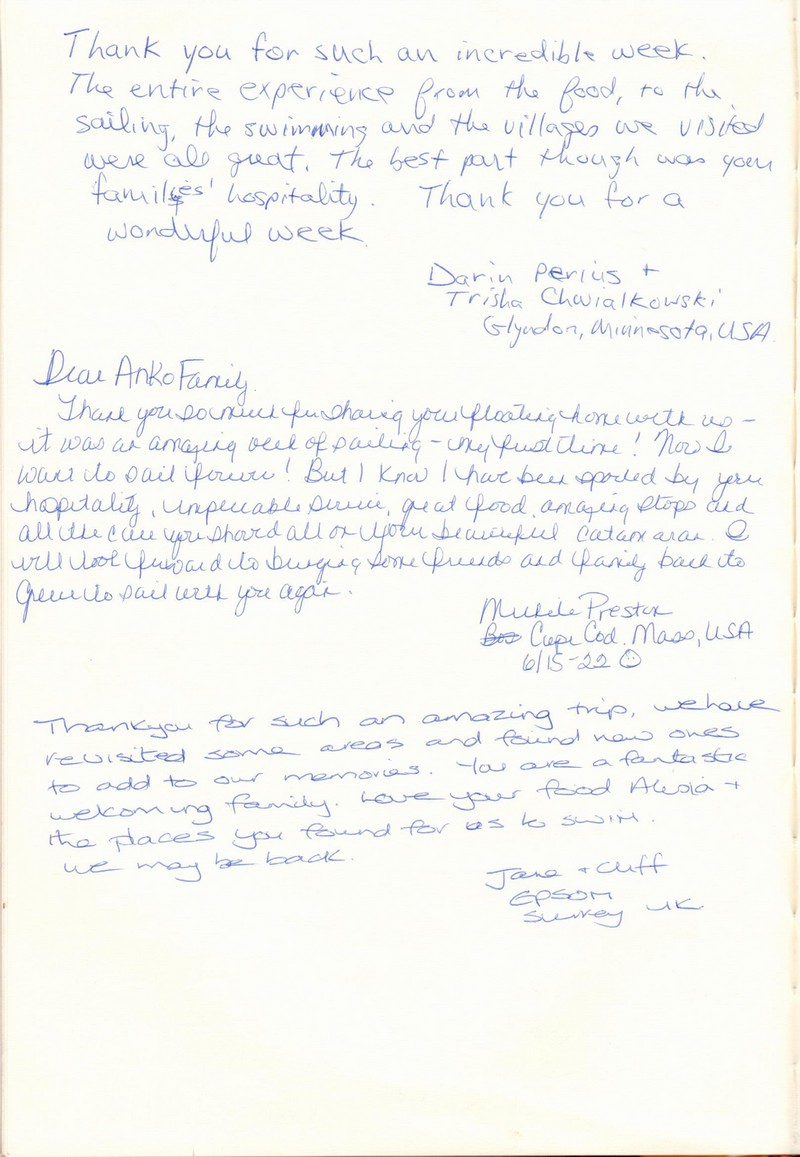 Thank you for such an incredible week.
The entire experience from the food, to the
sailing, the swimming and the villages we visited
were all great. The best part though was your
families' hospitality. Thank you for a
wonderful week.
Darin Perius +
Trisha Chwialkowski
Glyndon, Minnesota, USA
Dear Anko Family.
Thank you so much for sharing your floating home with us -
it was an amazing week of sailing - my first time! Now I
want to sail forever! But I know I have been spoiled by your
hospitality, impeccable service, great food, amazing stops and
all the care you showed all on your beautiful catamaran. I
will look forward to bringing some friends and family back to
Greece to sail with you again.
Michele Preston
Cape Cod. Mass, USA
6/15-22 ☺
Thankyou for such an amazing trip, we have
revisited some areas and found new ones
to add to our memories. You are a fantastic
welcoming family. Love your food Alexia +
the places you found for us to swim.
we may be back.
Jane + Cliff
EPSOM
Surrey UK